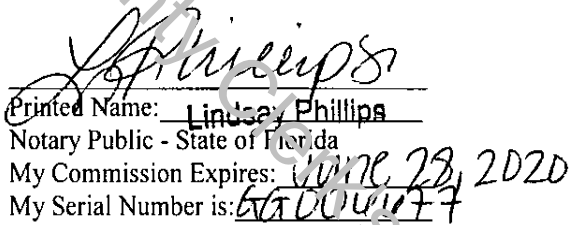 L Phillips
Printed Name: Lindsay Phillips
Notary Public - State of Florida
My Commission Expires: June 28, 2020
My Serial Number is: